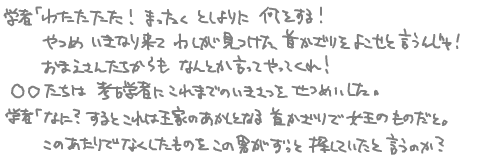 学者「わたたたた！まったく としよりに 何をする！
やつめ いきなり来て わしが見つけた 首かざりをよこせと言うんじゃ！
おまえさんたちからも なんとか言ってやってくれ！
○○たちは 考古学者にこれまでのいきさつを せつめいした。
学者「なに？するとこれは王家のあかしとなる 首かざりで女王のものだと。
このあたりでなくしたものをこの男がずっと 探していたと言うのか？